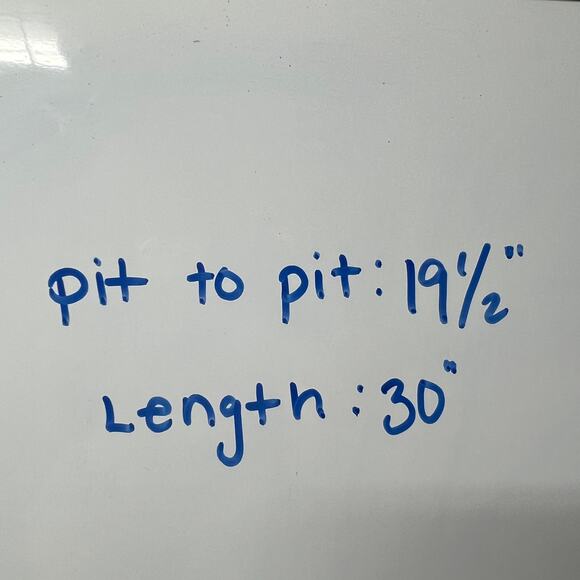 pit to pit: 19 1/2"
Length: 30"